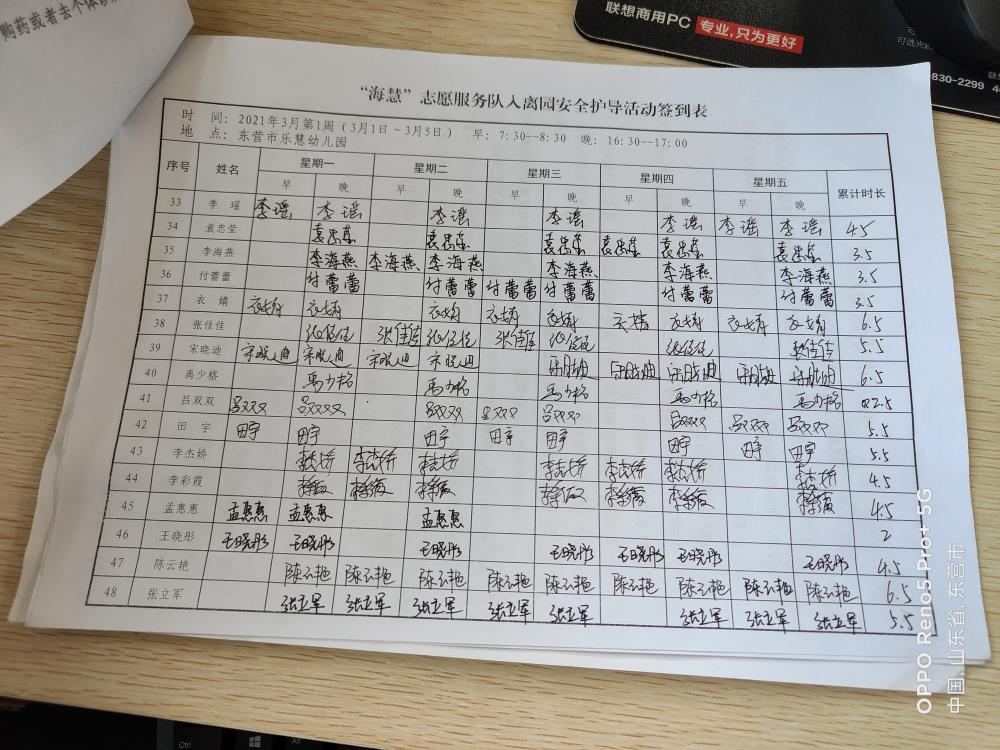 购药或者去个体诊
联想商用PC 专业,只为更好
830-2299
“海慧”志愿服务队入离园安全护导活动签到表
时 间: 2021年3月第1周(3月1日~3月5日) 早: 7:30--8:30 晚: 16:30--17:00
地 点: 东营市乐慧幼儿园
序号 姓名 星期一 星期二 星期三 星期四 星期五 累计时长
早 晚 早 晚 早 晚 早 晚 早 晚
33 李 瑶 李瑶 李瑶 李瑶 李瑶 李瑶 李瑶 李瑶 4.5
34 袁忠莹 袁忠莹 袁忠莹 袁忠莹 袁忠莹 袁忠莹 袁忠莹 3.5
35 李海燕 李海燕 李海燕 李海燕 李海燕 李海燕 李海燕 3.5
36 付蕾蕾 付蕾蕾 付蕾蕾 付蕾蕾 付蕾蕾 付蕾蕾 付蕾蕾 3.5
37 衣 婧 衣婧 衣婧 衣婧 衣婧 衣婧 衣婧 衣婧 衣婧 衣婧 6.5
38 张佳佳 张佳佳 张佳佳 张佳佳 张佳佳 张佳佳 张佳佳 张佳佳 5.5
39 宋晓迪 宋晓迪 宋晓迪 宋晓迪 宋晓迪 宋晓迪 宋晓迪 宋晓迪 宋晓迪 宋晓迪 6.5
40 禹少格 禹少格 禹少格 禹少格 禹少格 禹少格 2.5
41 吕双双 吕双双 吕双双 吕双双 吕双双 吕双双 吕双双 吕双双 吕双双 5.5
42 田 宇 田宇 田宇 田宇 田宇 田宇 田宇 田宇 田宇 5.5
43 李杰娇 李杰娇 李杰娇 李杰娇 李杰娇 李杰娇 李杰娇 李杰娇 4.5
44 李彩霞 李彩霞 李彩霞 李彩霞 李彩霞 李彩霞 李彩霞 李彩霞 4.5
45 孟惠惠 孟惠惠 孟惠惠 孟惠惠 2
46 王晓彤 王晓彤 王晓彤 王晓彤 王晓彤 王晓彤 王晓彤 王晓彤 4.5
47 陈云艳 陈云艳 陈云艳 陈云艳 陈云艳 陈云艳 陈云艳 陈云艳 陈云艳 陈云艳 6.5
48 张立军 张立军 张立军 张立军 张立军 张立军 张立军 张立军 张立军 5.5
Ctrl
Alt
OPPO Reno5 Pro+ 5G
中国, 山东省, 东营市